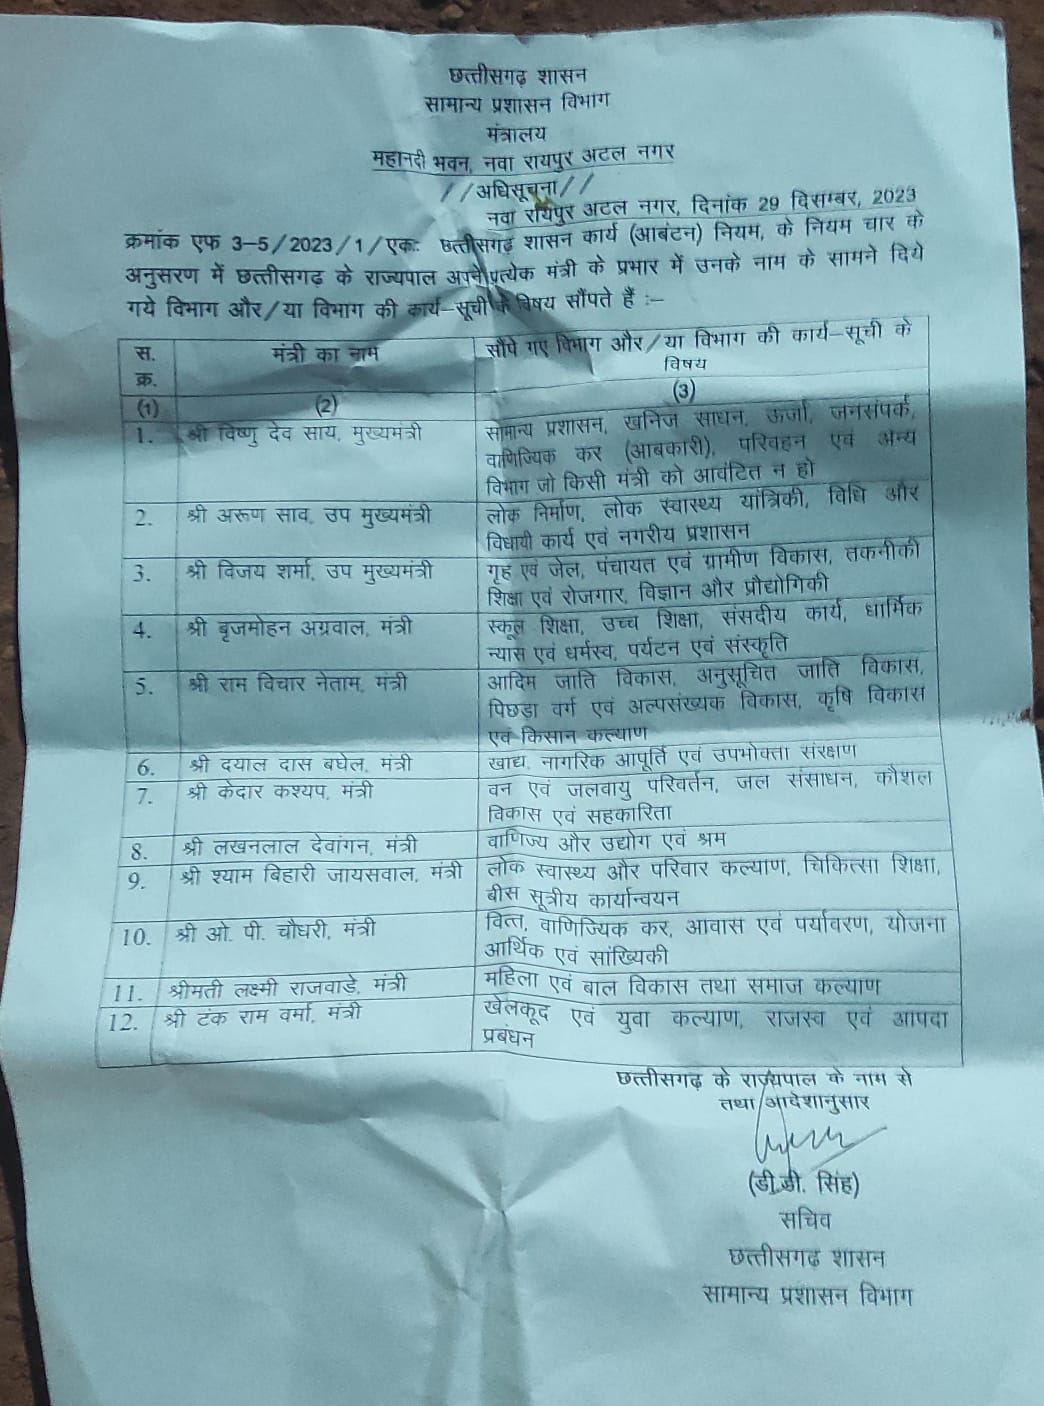 छत्तीसगढ़ शासन
सामान्य प्रशासन विभाग
मंत्रालय
महानदी भवन, नवा रायपुर अटल नगर
//अधिसूचना//
नवा रायपुर अटल नगर, दिनांक 29 दिसम्बर, 2023
क्रमांक एफ 3–5/2023/1/एकः छत्तीसगढ़ शासन कार्य (आबंटन) नियम, के नियम चार के
अनुसरण में छत्तीसगढ़ के राज्यपाल अपने प्रत्येक मंत्री के प्रभार में उनके नाम के सामने दिये
गये विभाग और/या विभाग की कार्य–सूची के विषय सौंपते हैं :–
स. क्र. मंत्री का नाम सौंपे गए विभाग और/या विभाग की कार्य–सूची के
विषय
(1) (2) (3)
1. श्री विष्णु देव साय, मुख्यमंत्री सामान्य प्रशासन, खनिज साधन, ऊर्जा, जनसंपर्क,
वाणिज्यिक कर (आबकारी), परिवहन एवं अन्य
विभाग जो किसी मंत्री को आवंटित न हो
2. श्री अरूण साव, उप मुख्यमंत्री लोक निर्माण, लोक स्वास्थ्य यांत्रिकी, विधि और
विधायी कार्य एवं नगरीय प्रशासन
3. श्री विजय शर्मा, उप मुख्यमंत्री गृह एवं जेल, पंचायत एवं ग्रामीण विकास, तकनीकी
शिक्षा एवं रोजगार, विज्ञान और प्रौद्योगिकी
4. श्री बृजमोहन अग्रवाल, मंत्री स्कूल शिक्षा, उच्च शिक्षा, संसदीय कार्य, धार्मिक
न्यास एवं धर्मस्व, पर्यटन एवं संस्कृति
5. श्री राम विचार नेताम, मंत्री आदिम जाति विकास, अनुसूचित जाति विकास,
पिछड़ा वर्ग एवं अल्पसंख्यक विकास, कृषि विकास
एवं किसान कल्याण
6. श्री दयाल दास बघेल, मंत्री खाद्य, नागरिक आपूर्ति एवं उपभोक्ता संरक्षण
7. श्री केदार कश्यप, मंत्री वन एवं जलवायु परिवर्तन, जल संसाधन, कौशल
विकास एवं सहकारिता
8. श्री लखनलाल देवांगन, मंत्री वाणिज्य और उद्योग एवं श्रम
9. श्री श्याम बिहारी जायसवाल, मंत्री लोक स्वास्थ्य और परिवार कल्याण, चिकित्सा शिक्षा,
बीस सूत्रीय कार्यान्वयन
10. श्री ओ. पी. चौधरी, मंत्री वित्त, वाणिज्यिक कर, आवास एवं पर्यावरण, योजना
आर्थिक एवं सांख्यिकी
11. श्रीमती लक्ष्मी राजवाड़े, मंत्री महिला एवं बाल विकास तथा समाज कल्याण
12. श्री टंक राम वर्मा, मंत्री खेलकूद एवं युवा कल्याण, राजस्व एवं आपदा
प्रबंधन
छत्तीसगढ़ के राज्यपाल के नाम से
तथा आदेशानुसार
(डी.डी. सिंह)
सचिव
छत्तीसगढ़ शासन
सामान्य प्रशासन विभाग